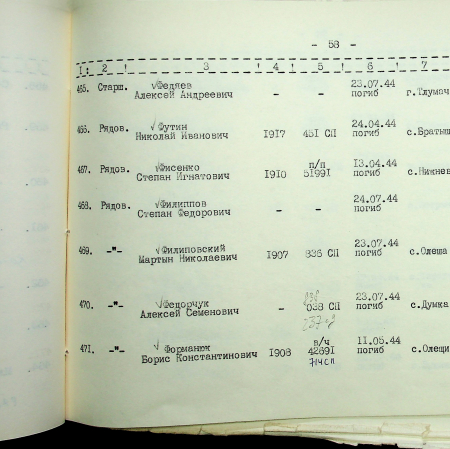 - 58 -
I: 2 ! 3 ! 4 ! 5 ! 6 ! 7
465. Старш. √Федяев 23.07.44
Алексей Андреевич - - погиб г.Тлумач
466. Рядов. √Футин 24.04.44
Николай Иванович 1917 451 СП погиб с.Братыш
467. Рядов. √Фисенко п/п 13.04.44
Степан Игнатович 1910 51991 погиб с.Нижнев
468. Рядов. √Филиппов 24.07.44
Степан Федорович - - погиб
469. -"- √Филиповский 23.07.44
Мартын Николаевич 1907 836 СП погиб с.Олеша
470. -"- √Федорчук 23.07.44
Алексей Семенович - 038 СП погиб с.Думка
471. -"- √ Форманюк в/ч 11.05.44
Борис Константинович 1908 42691 погиб с.Олеши
714 СП